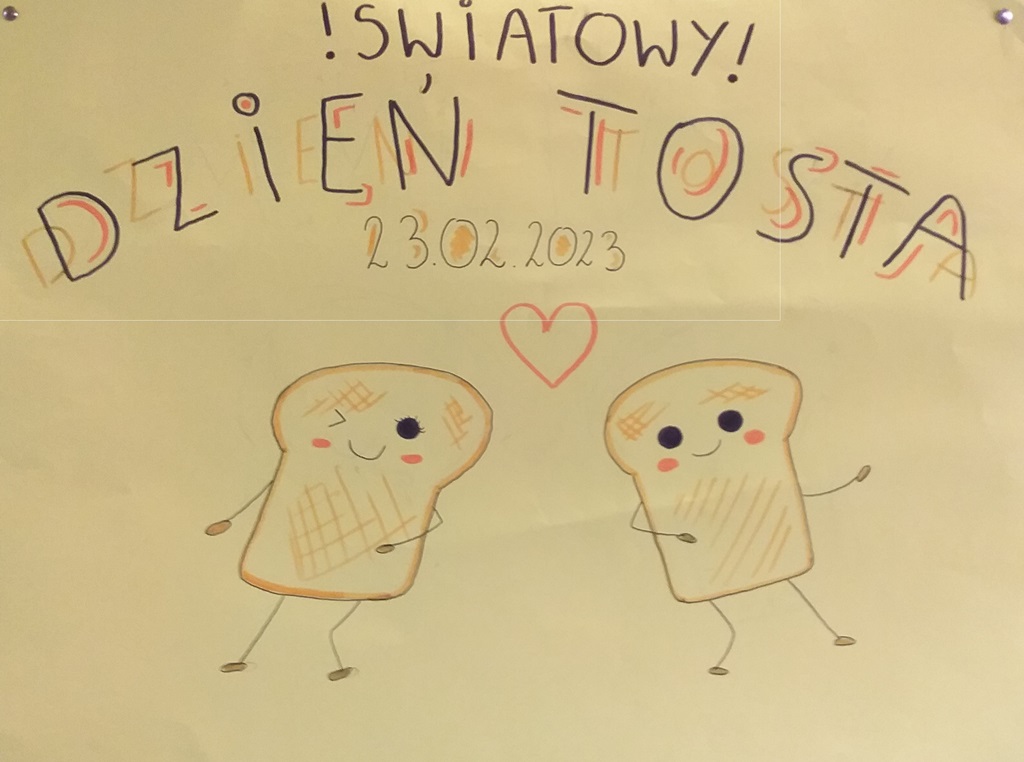 !SWIATOWY!
DZIEŃ TOSTA
23.02.2023